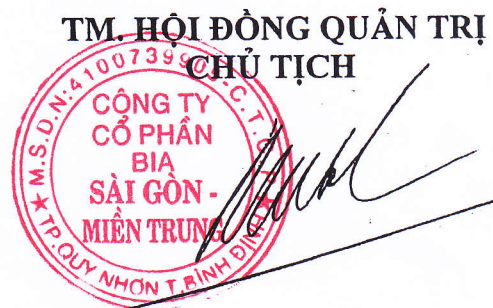 TM. HỘI ĐỒNG QUẢN TRỊ
CHỦ TỊCH
M.S.D.N:4100739909-C.T.C.P
CÔNG TY
CỔ PHẦN
BIA
SÀI GÒN -
MIỀN TRUNG
TP.QUY NHƠN T.BÌNH ĐỊNH